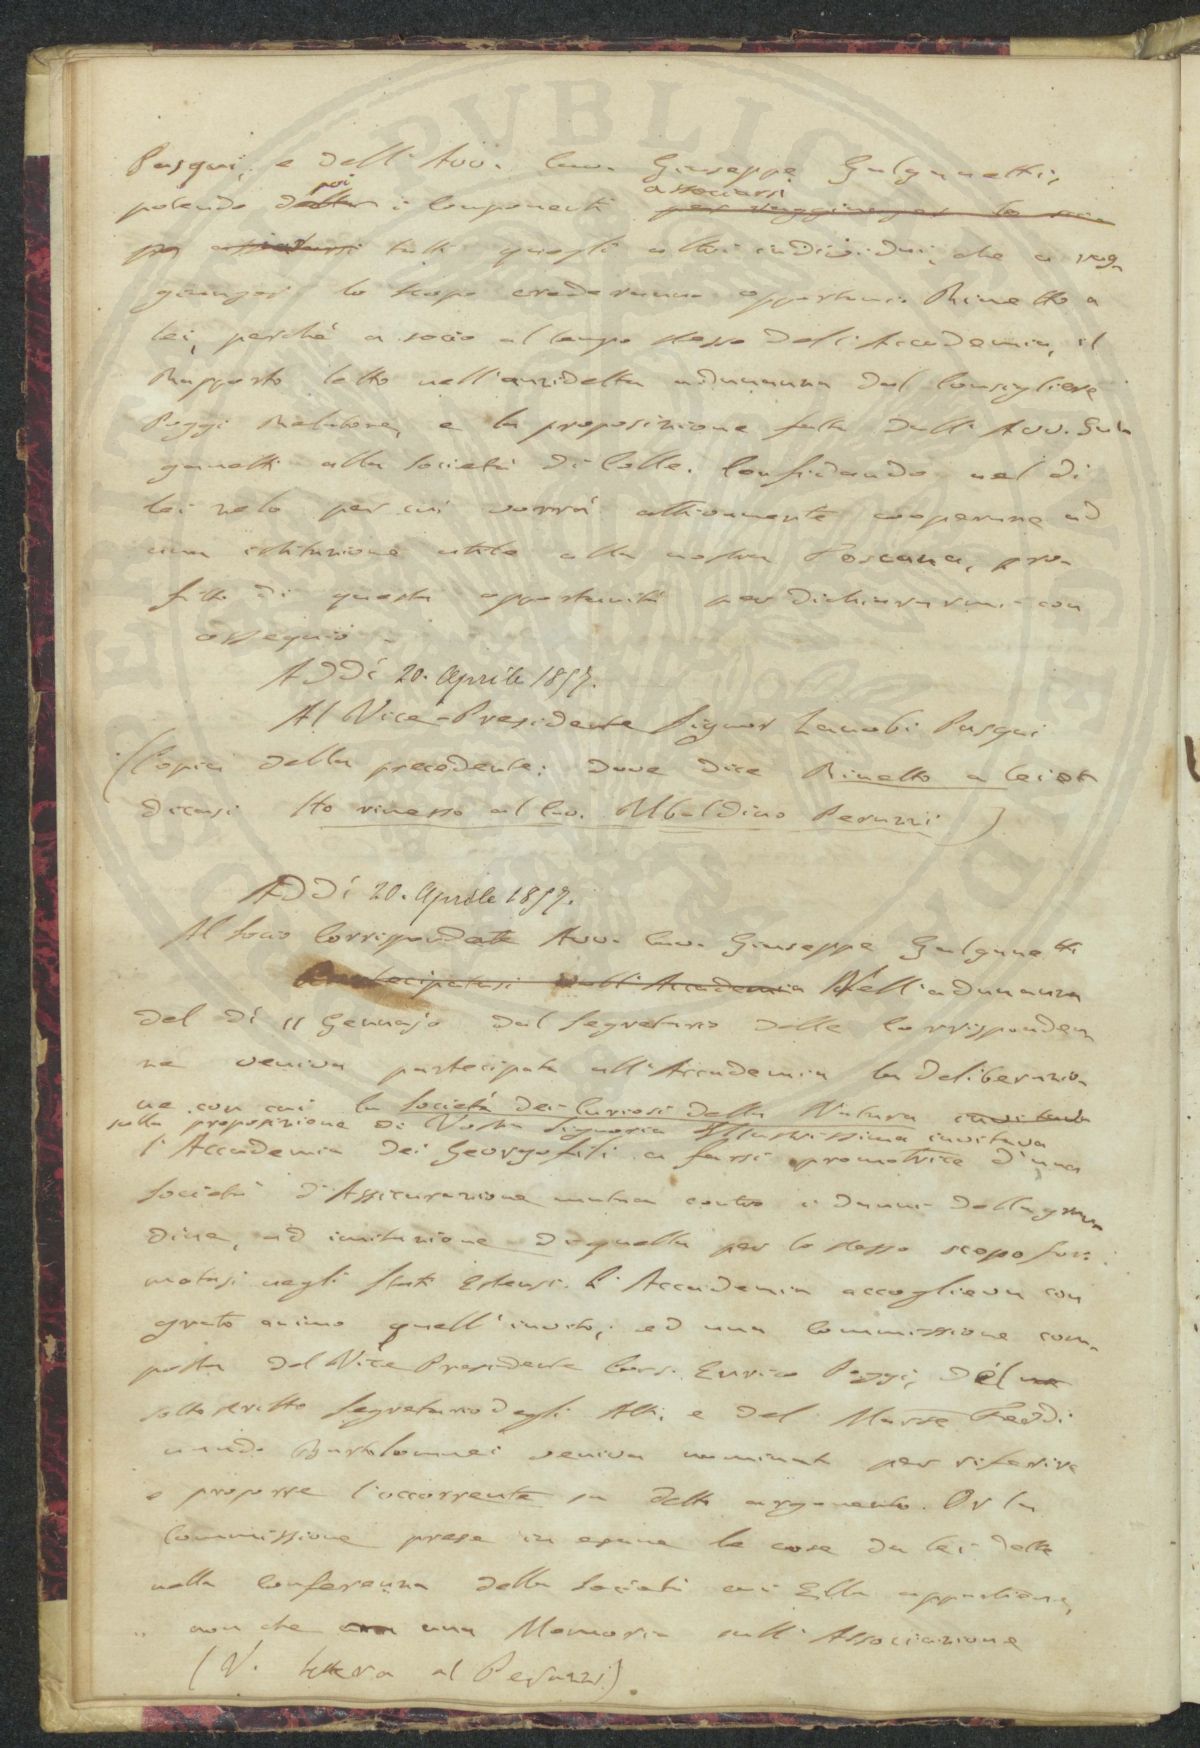 Pasqui, e dell'Avv. Cav. Giuseppe Galganetti;
poi associarsi
potendo detti i componenti per raggiunger lo sco
po associarsi tutti quegli altri individui, che a rag
giunger lo scopo crederanno opportuni. Rimetto a
Lei, perchè a socio al tempo stesso dell'Accademia, il
Rapporto letto nell'anzidetta adunanza dal Consigliere
Poggi Relatore, e la proposizione fatta dall'Avv. Gal
ganetti alla Società di Colle. Confidando nel di
Lei zelo per cui vorrà attivamente cooperare ad
una istituzione utile alla nostra Toscana, pro
fitto di questa opportunità per dichiararmi con
ossequio
Addì 20. Aprile 1857.
Al Vice-Presidente Signor Zanobi Pasqui
(Copia della precedente: dove dice Rimetto a Lei
dicasi Ho rimesso al Cav. Ubaldino Peruzzi)
Addì 20. Aprile 1857.
Al Socio Corrispondente Avv. Cav. Giuseppe Galganetti
Partecipatasi dall'Accademia Nell'adunanza
del dì 11 Gennajo dal Segretario delle Corrisponden
ze veniva partecipata all'Accademia la deliberazio
ne con cui la Società dei Curiosi della Natura invitando
sulla proposizione di Vostra Signoria Illustrissima invitava
l'Accademia dei Georgofili a farsi promotrice d'una
Società d'Assicurazione mutua contro i danni della gran
dine, ad imitazione di quella per lo stesso scopo for
matasi negli Stati Estensi. L'Accademia accoglieva con
grato animo quell'invito; ed una Commissione com
posta del Vice Presidente Cons. Enrico Poggi, del
sottoscritto Segretario degli Atti, e del March.e Ferdi
nando Bartolommei veniva nominata per riferire
e proporre l'occorrente su detto argomento. Or la
Commissione prese in esame le cose da Lei dette
nella conferenza della Società cui Ella appartiene,
non che una Memoria sull'Associazione
(V. lettera al Peruzzi)